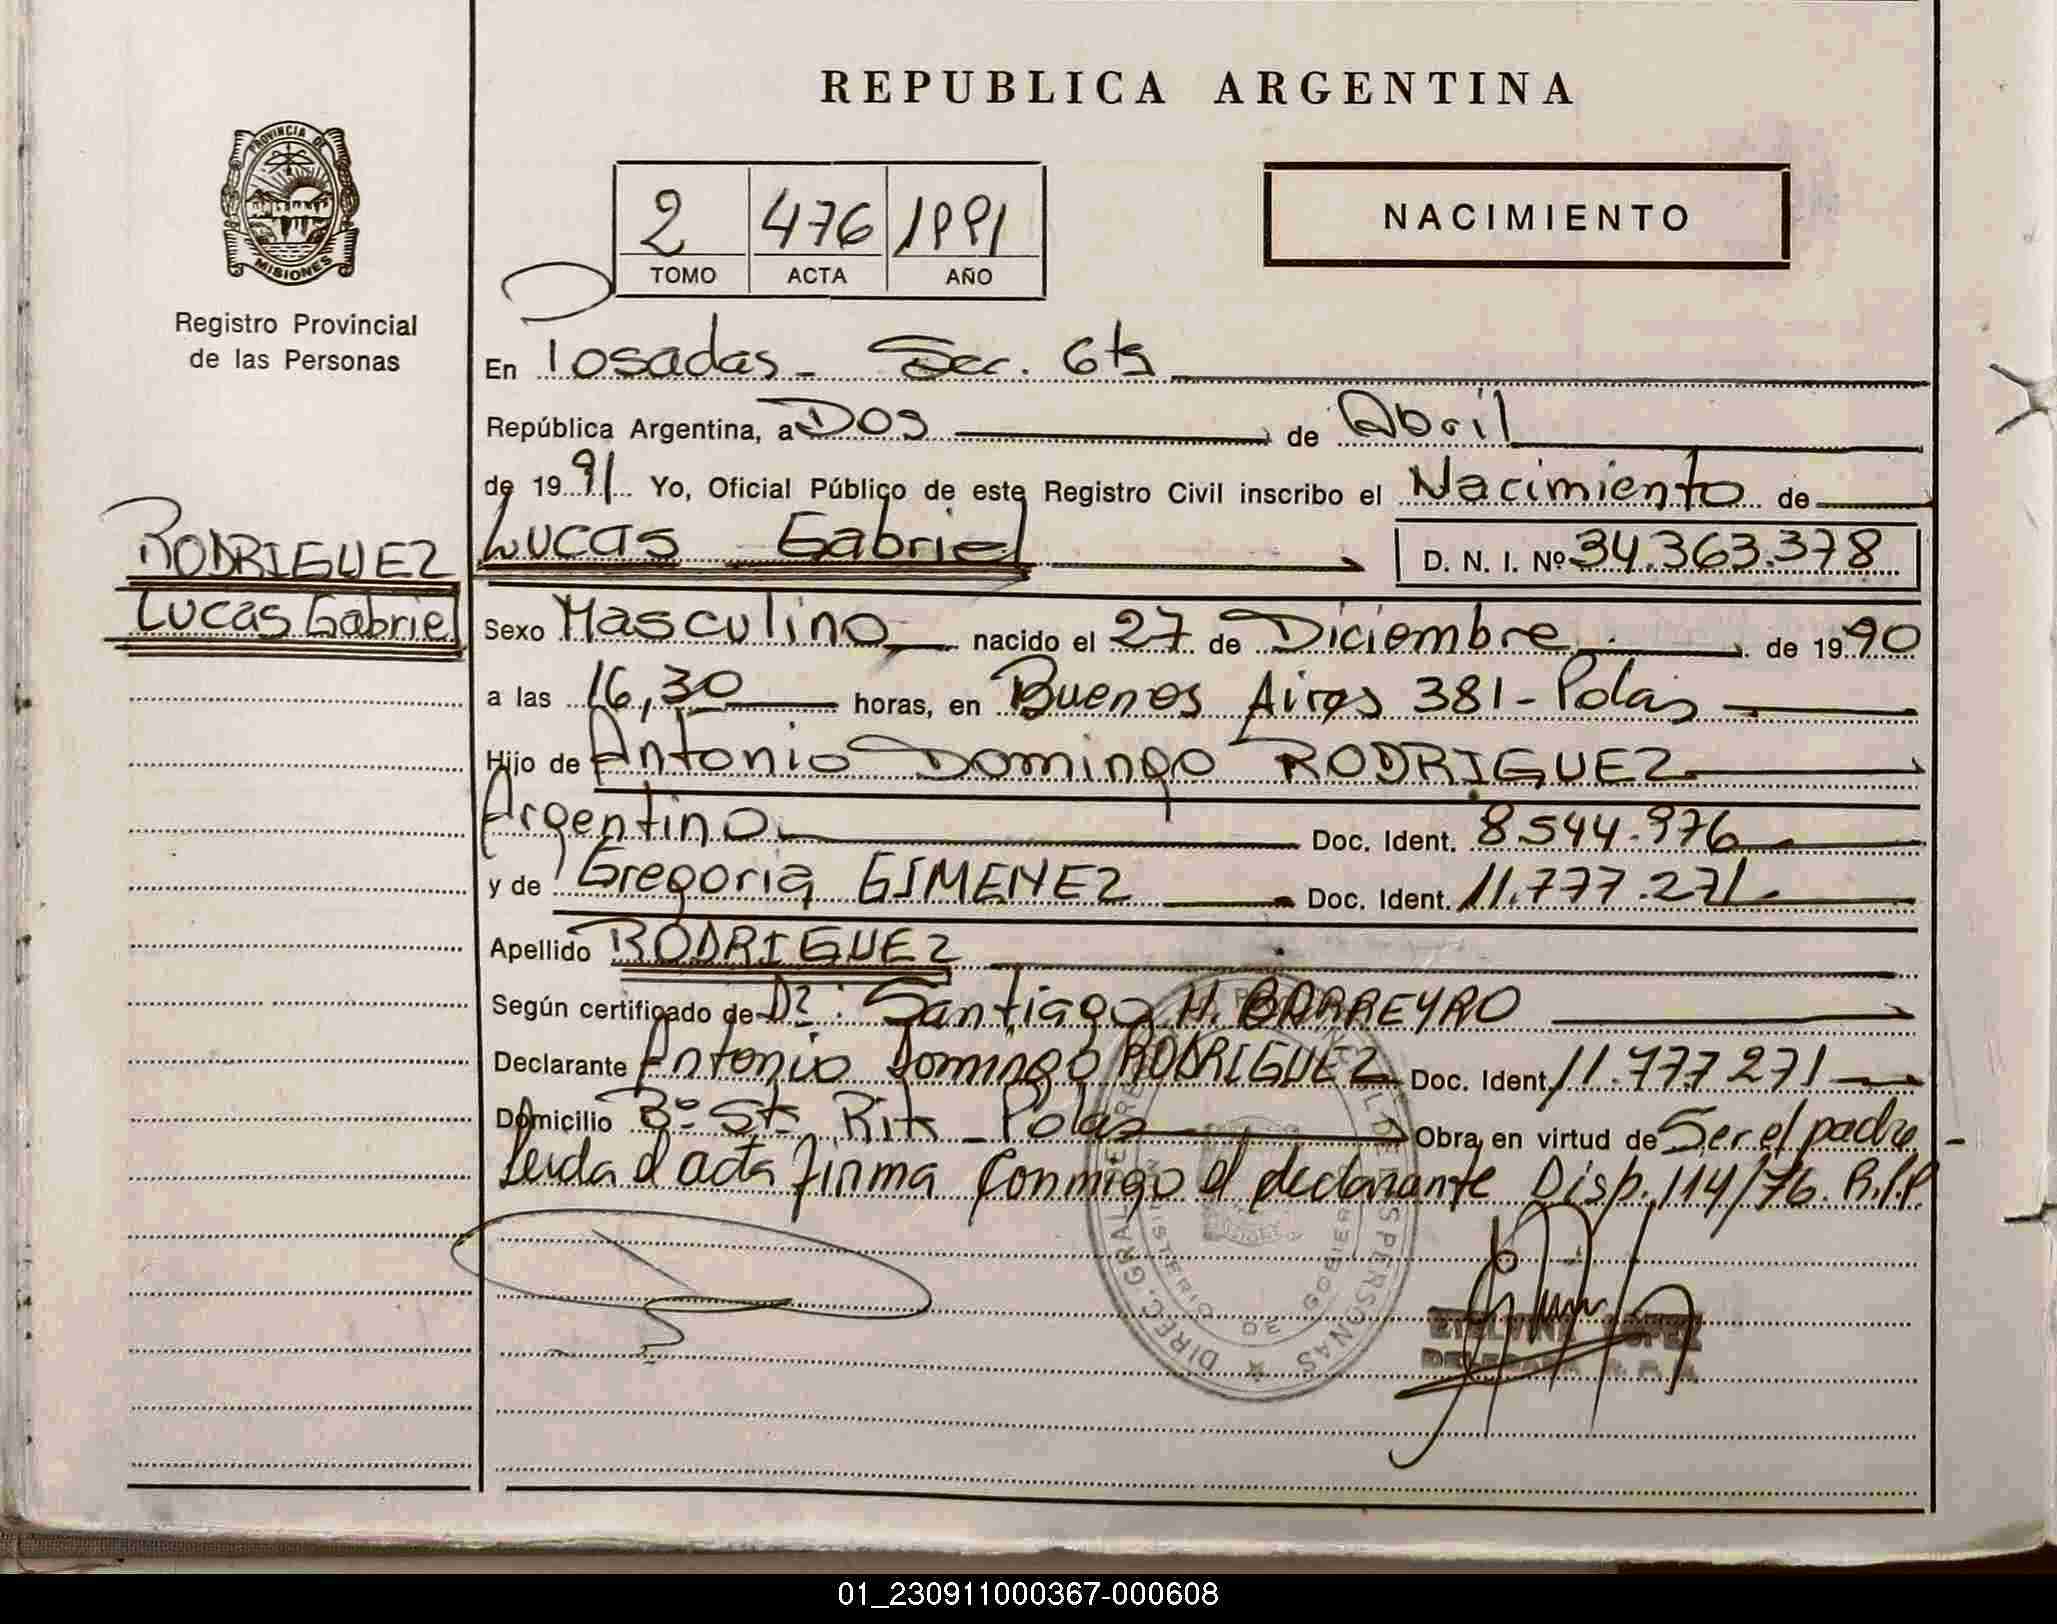 REPUBLICA ARGENTINA
PROVINCIA DE MISIONES
Registro Provincial
de las Personas
2 476 1991
TOMO ACTA AÑO
NACIMIENTO
En Posadas - Sec. 6ta
República Argentina, a Dos de Abril
de 1991 Yo, Oficial Público de este Registro Civil inscribo el Nacimiento de
RODRIGUEZ
Lucas Gabriel
Lucas Gabriel D. N. I. Nº 34.363.378
Sexo Masculino nacido el 27 de Diciembre de 1990
a las 16,30 horas, en Buenos Aires 381 - Pdas
Hijo de Antonio Domingo RODRIGUEZ
Argentino Doc. Ident. 8.544.976
y de Gregoria GIMENEZ Doc. Ident. 11.777.271
Apellido RODRIGUEZ
Según certificado de Dr. Santiago H. BARREYRO
Declarante Antonio Domingo RODRIGUEZ Doc. Ident. 11.777.271
Domicilio Bº Sta Rita - Pdas Obra en virtud de Ser el padre -
Leida el acta firma conmigo el declarante Disp. 114/76. R.P.P.
DIREC. GRAL. DE PERSONAS
MINISTERIO DE GOBIERNO
ETELVINA LOPEZ
01_230911000367-000608